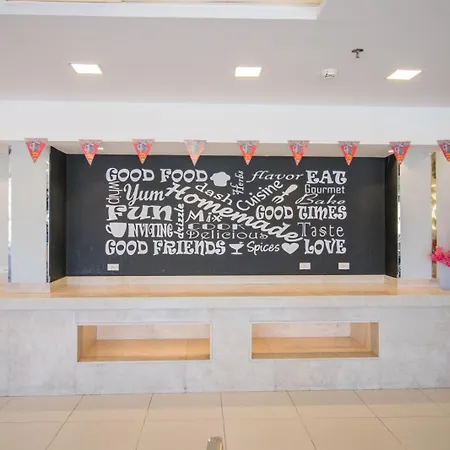 GOOD FOOD
flavor
EAT
wine
Yum
dash
Herbs
Cuisine
Gourmet
Bake
Homemade
FUN
drizzle
Mix
GOOD TIMES
INVITING
COOK
Taste
Delicious
GOOD FRIENDS
Spices
LOVE